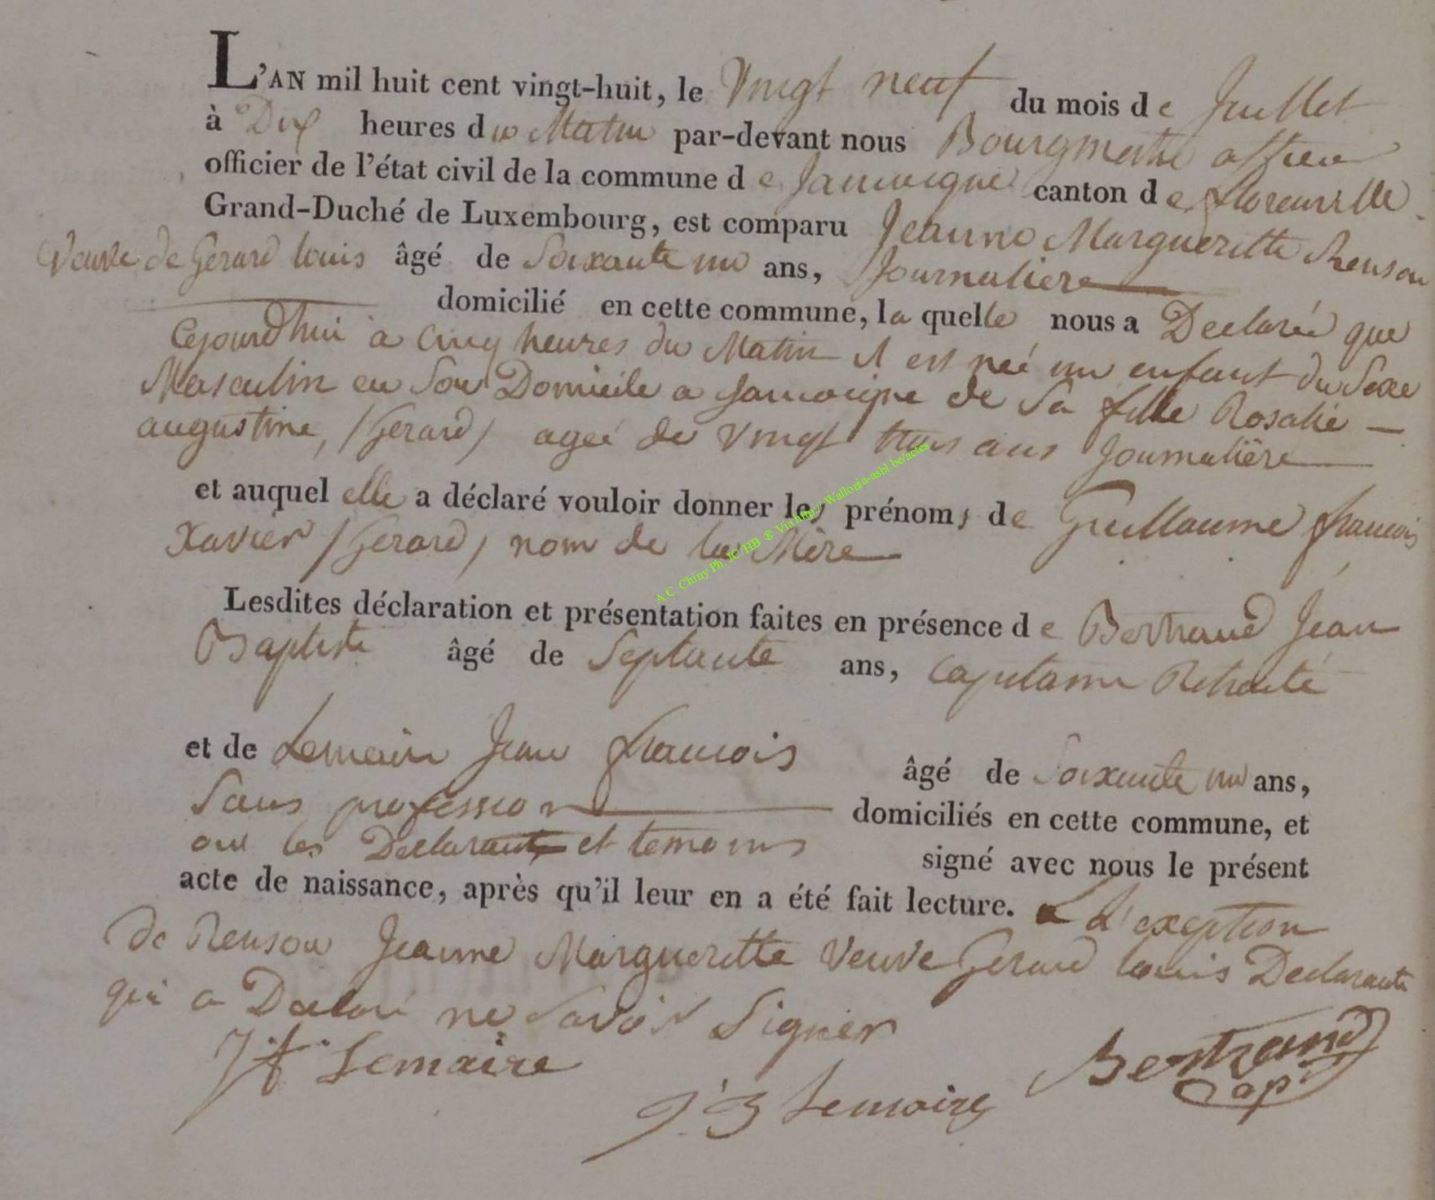 L'AN mil huit cent vingt-huit, le Vingt neuf du mois de Juillet
à Dix heures du Matin par-devant nous Bourgmestre
officier de l'état civil de la commune de Jamoigne canton de florenville
Grand-Duché de Luxembourg, est comparu Jeanne Margueritte Renson
Veuve de Gerard louis âgé de Soixante un ans, Journaliere
domicilié en cette commune, la quelle nous a Declaréé que
Cejourdhui a Cinq heures du Matin il est néé un enfant du Sexe
Masculin en Son Domicile a Jamoigne de Sa fille Rosalie
augustine, /Gerard/ ageé de Vingt trois ans Journalière
et auquel elle a déclaré vouloir donner les prénoms de Guillaume francois
Xavier /Gerard/ nom de la Mère
A.C. Chiny Ph. JC HB ® Via
Lesdites déclaration et présentation faites en présence de Bertrand Jean
Baptiste âgé de Septante ans, Capitaine Retraité
et de Jean francois âgé de Soixante un ans,
Sans profession domiciliés en cette commune, et
ont les Declarants et temoins signé avec nous le présent
acte de naissance, après qu'il leur en a été fait lecture. a L'exeption
de Renson Jeanne Margueritte Veuve Gerard louis Declarante
qui a Declaré ne Savoir Signer
Lemaire
Lemaire
Bertrand
Cap